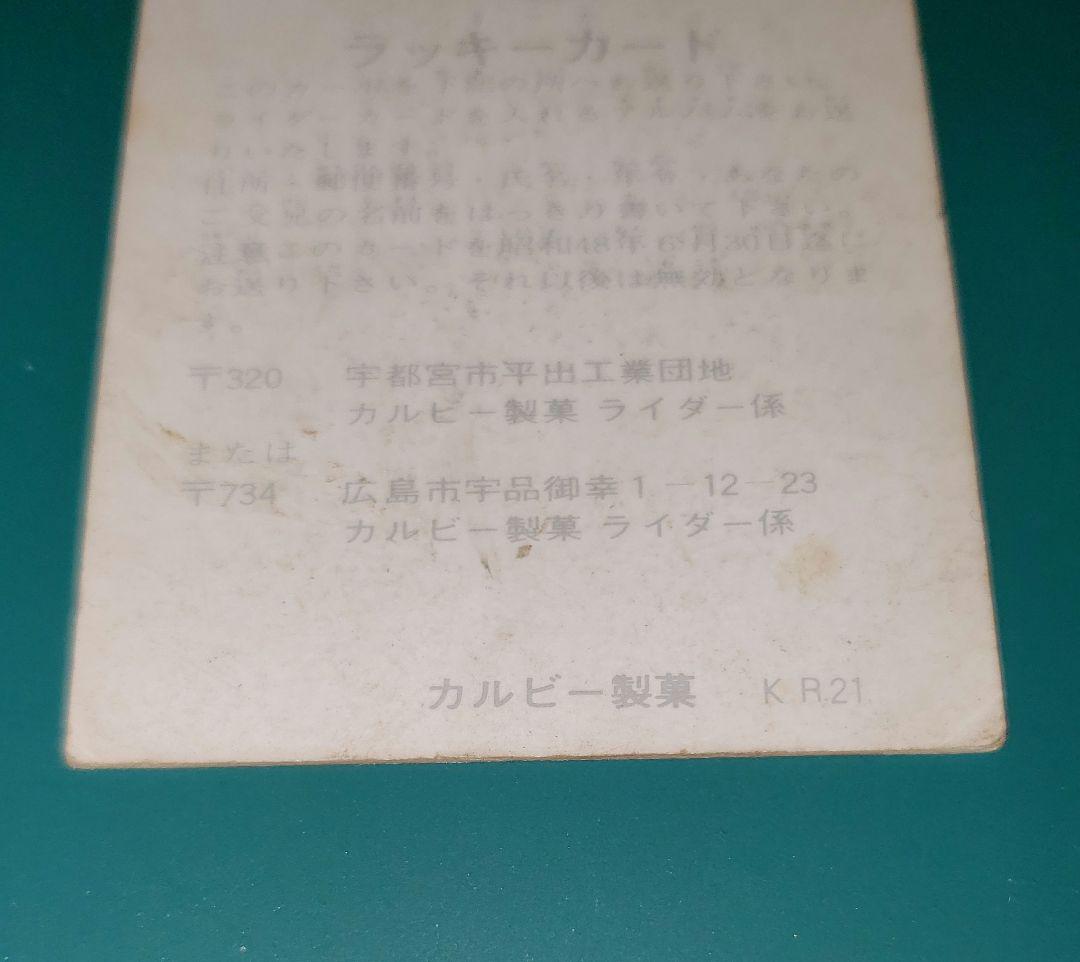 ラッキーカード
このカードを下記の所へお送り下さい。
ライダーカードを入れるアルバムをお送
りいたします。
住所・郵便番号・氏名・年令・あなたの
ご父兄の名前をはっきり書いて下さい。
注意このカードを昭和48年6月30日迄に
お送り下さい。それ以後は無効となりま
す。
〒320 宇都宮市平出工業団地
カルビー製菓 ライダー係
または
〒734 広島市宇品御幸1-12-23
カルビー製菓 ライダー係
カルビー製菓 K R.21